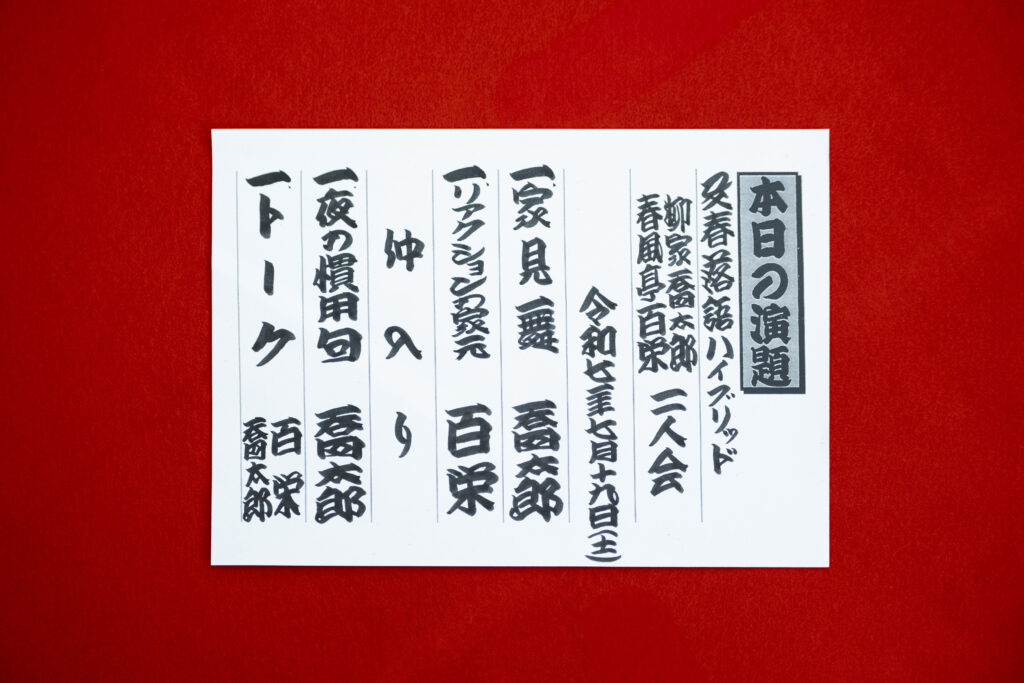 本日の演題
文春落語ハイブリッド
柳家喬太郎
春風亭百栄 二人会
令和七年七月十九日(土)
一家見舞 喬太郎
一リアクションの家元 百栄
仲入り
一夜の慣用句 喬太郎
一トーク 百栄
喬太郎